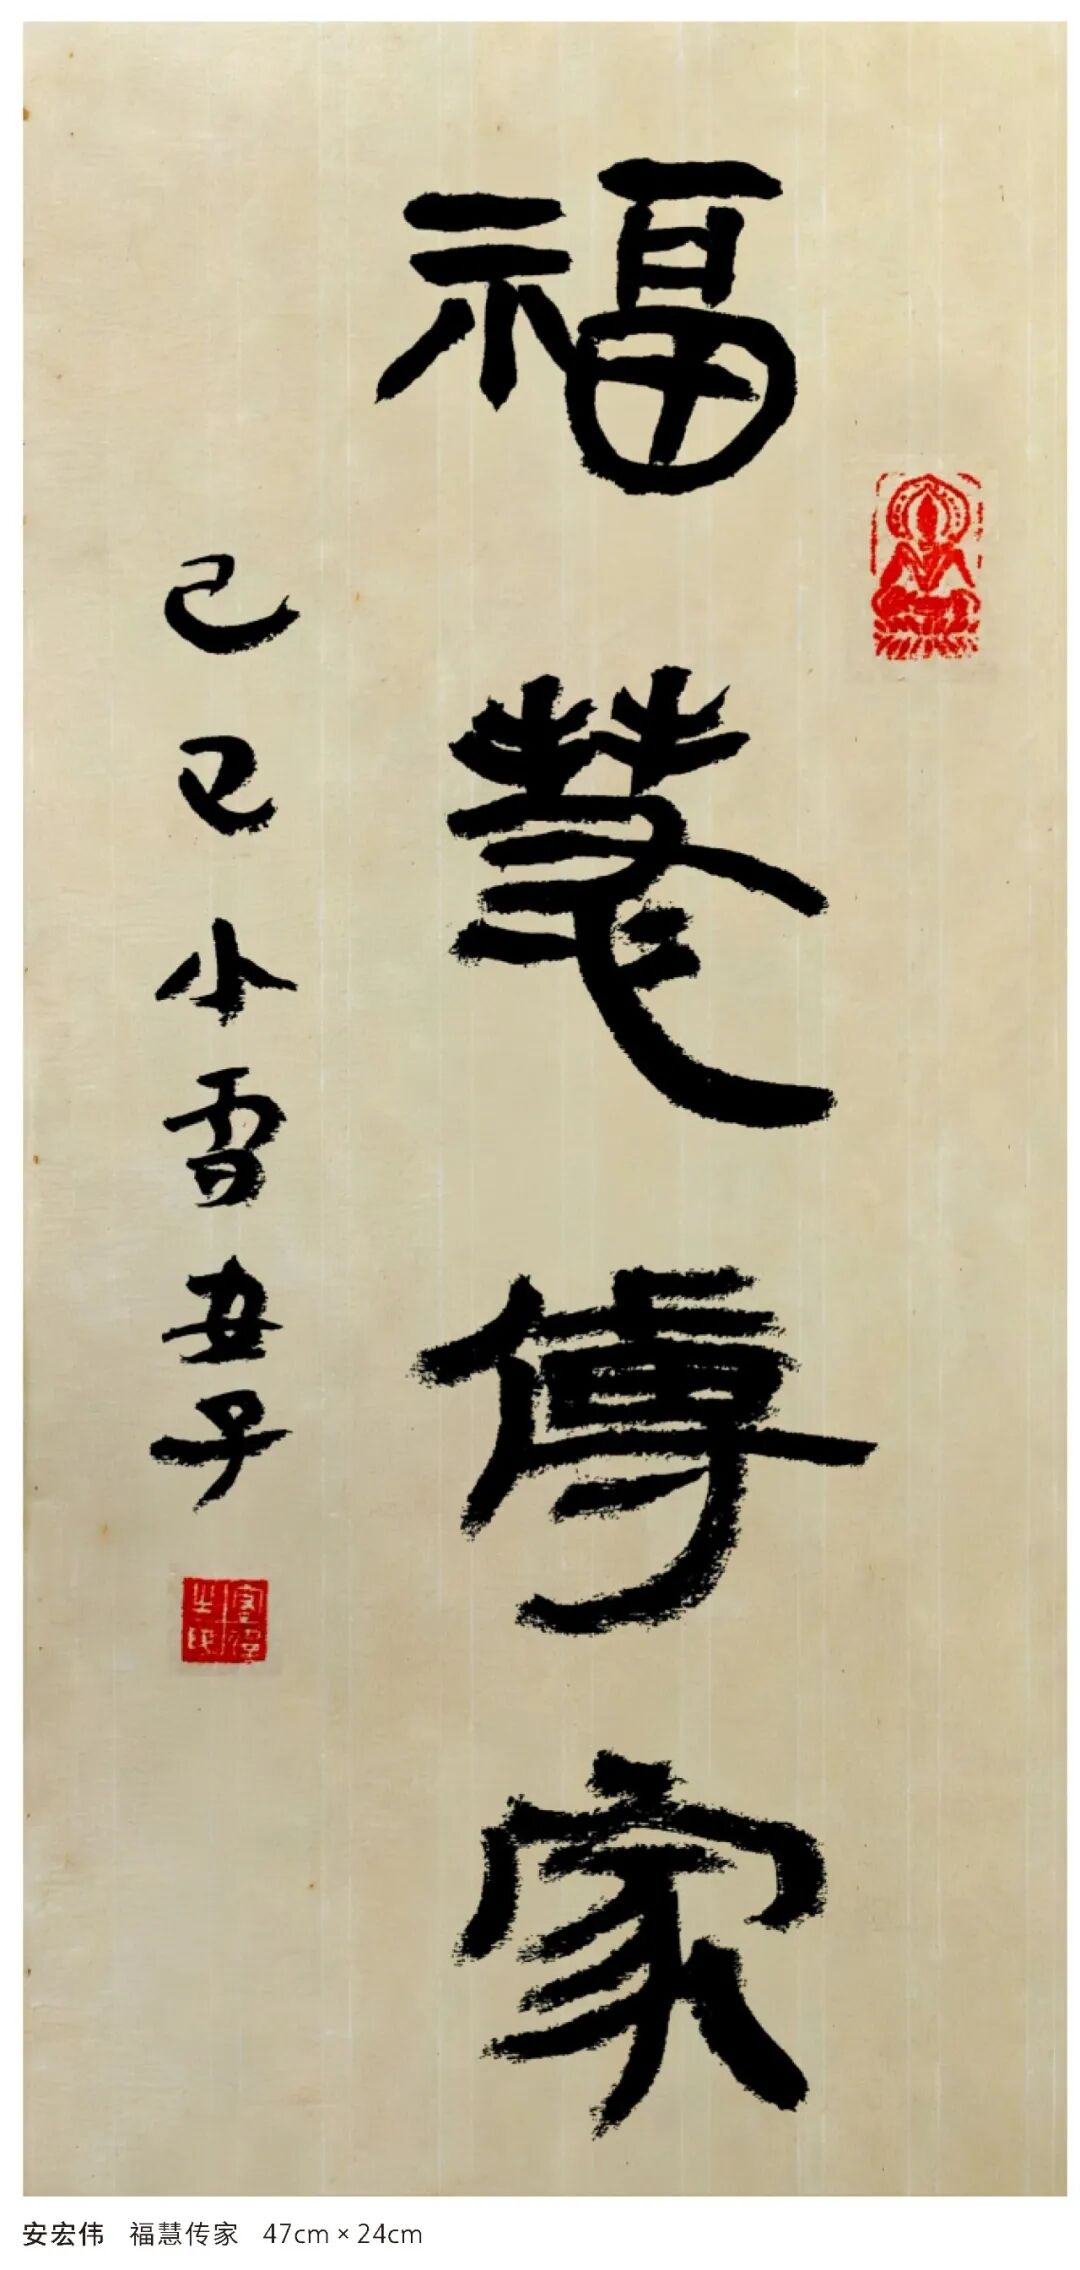 福慧傳家
己巳小雪丑子
安宏伟 福慧传家 47cm × 24cm